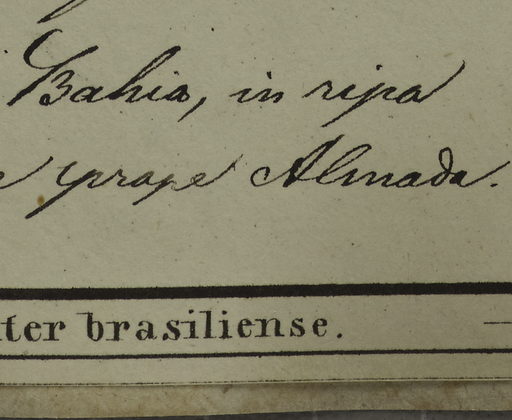 Bahia, in ripa
prope Almada.
ter brasiliense.